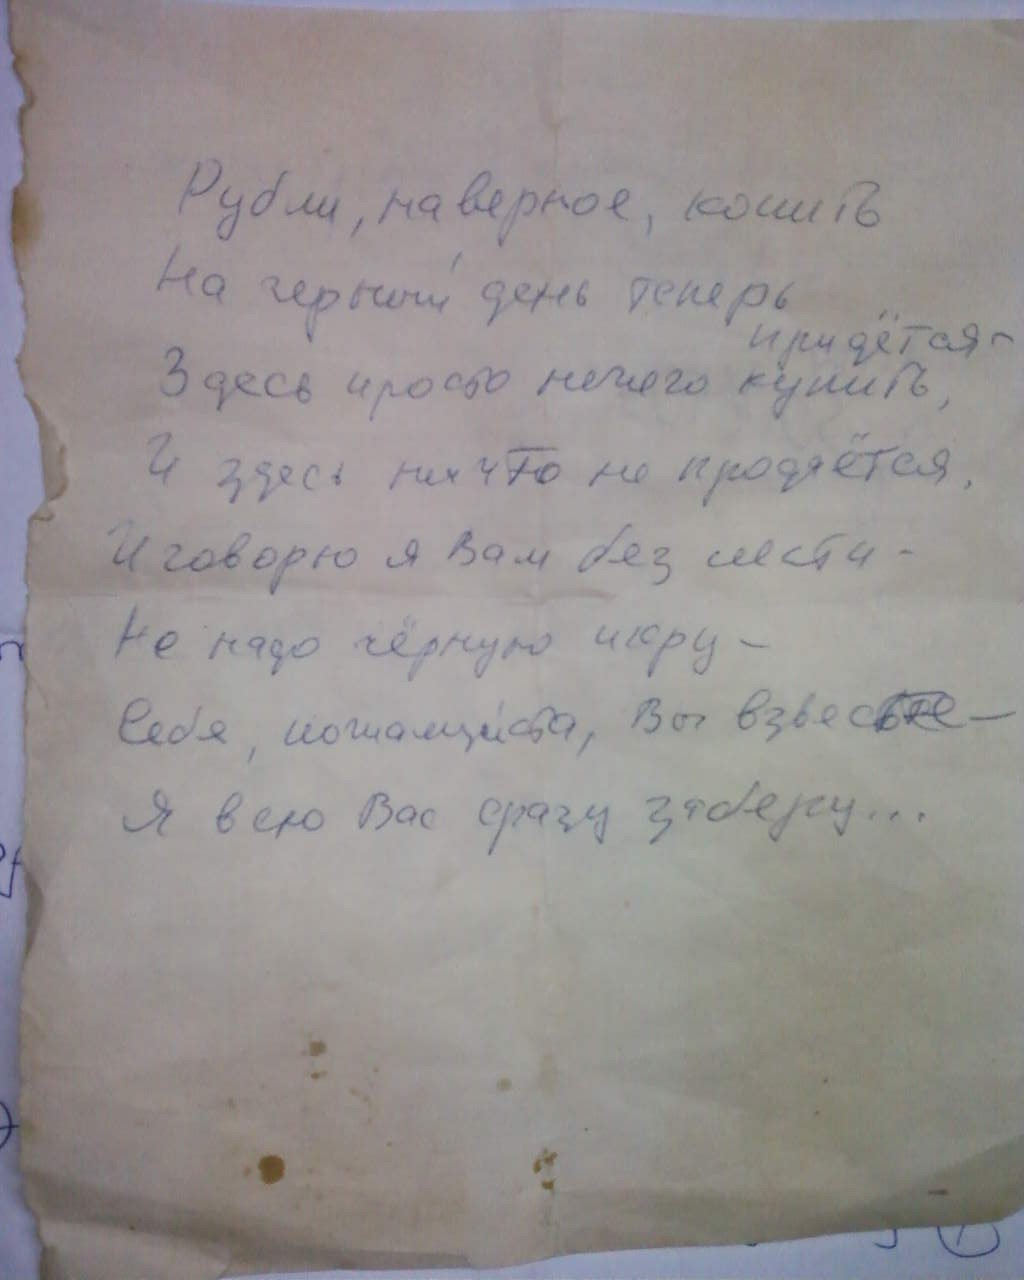 Рубли, наверное, копить
На черный день теперь
придётся-
Здесь просто нечего купить,
И здесь ничто не продаётся.
И говорю я Вам без лести -
Не надо чёрную икру -
Себя, пожалуйста, Вы взвесьте -
Я всю Вас сразу заберу...